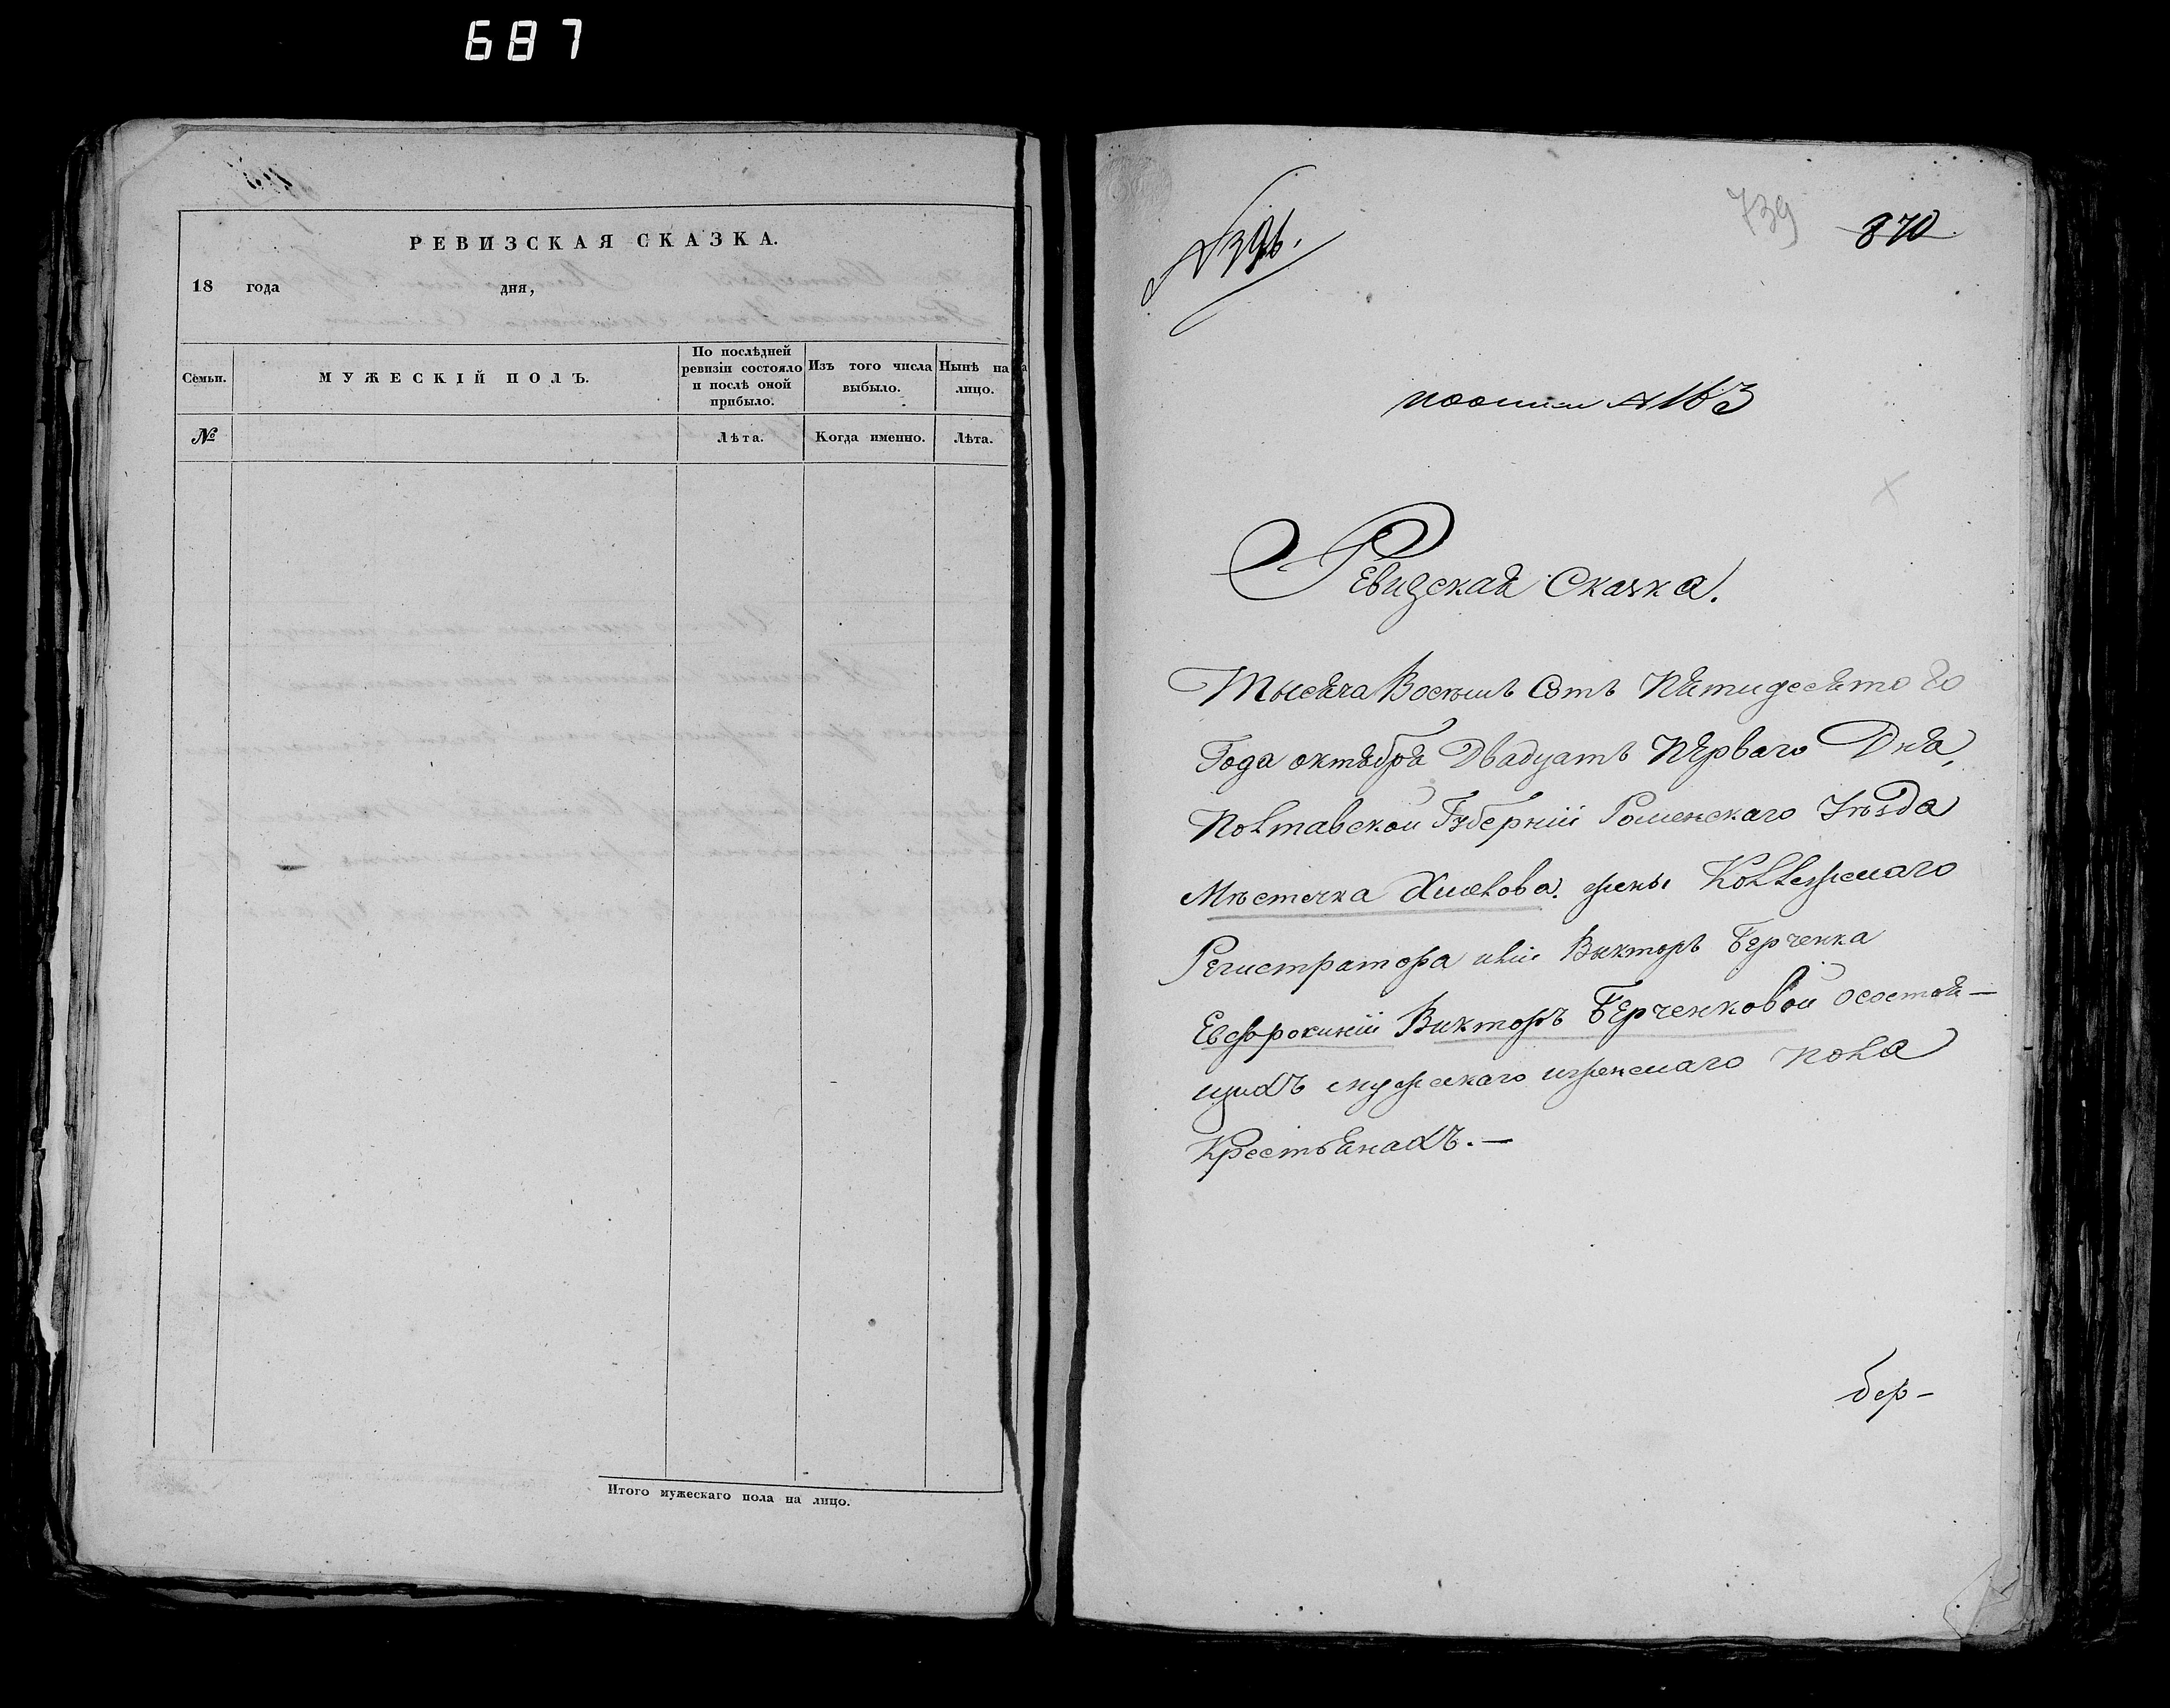 687
РЕВИЗСКАЯ СКАЗКА.
18 года дня,
Семьи.
МУЖЕСКІЙ ПОЛЪ.
По послѣдней ревизіи состояло и послѣ оной прибыло.
Изъ того числа выбыло.
Нынѣ на лицо.
№
Лѣта.
Когда именно.
Лѣта.
Итого мужескаго пола на лицо.
739
870
№ 163
Ревизская Сказка.
Тысяча Восемь Сотъ Пятидесятого
Года октября Двадцать Перваго Дня,
Полтавской Губерніи Роменскаго Уѣзда
Мѣстечка Хмѣлова. жены Коллежскаго
Регистратора Викторъ Берченка
Евфросиніи Викторъ Берченковой осостоя-
щихъ мужескаго иженскаго пола
Крестьянахъ.—
бер-